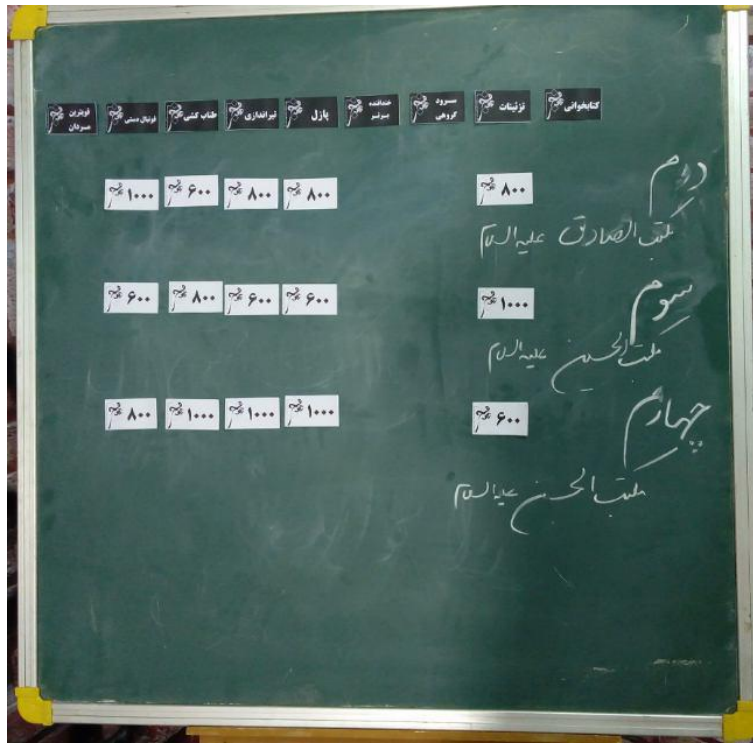 کتابخوانی تزئینات سرود گروهی خندانندہ برتر پازل تیراندازی طناب کشی فوتبال دستی قویترین مردان
دوم ۸۰۰ ۸۰۰ ۸۰۰ ۶۰۰ ۱۰۰۰
مکتب الصادق علیه السلام
سوم ۱۰۰۰ ۶۰۰ ۶۰۰ ۸۰۰ ۶۰۰
مکتب الحسین علیه السلام
چهارم ۶۰۰ ۱۰۰۰ ۱۰۰۰ ۱۰۰۰ ۸۰۰
مکتب الحسن علیه السلام